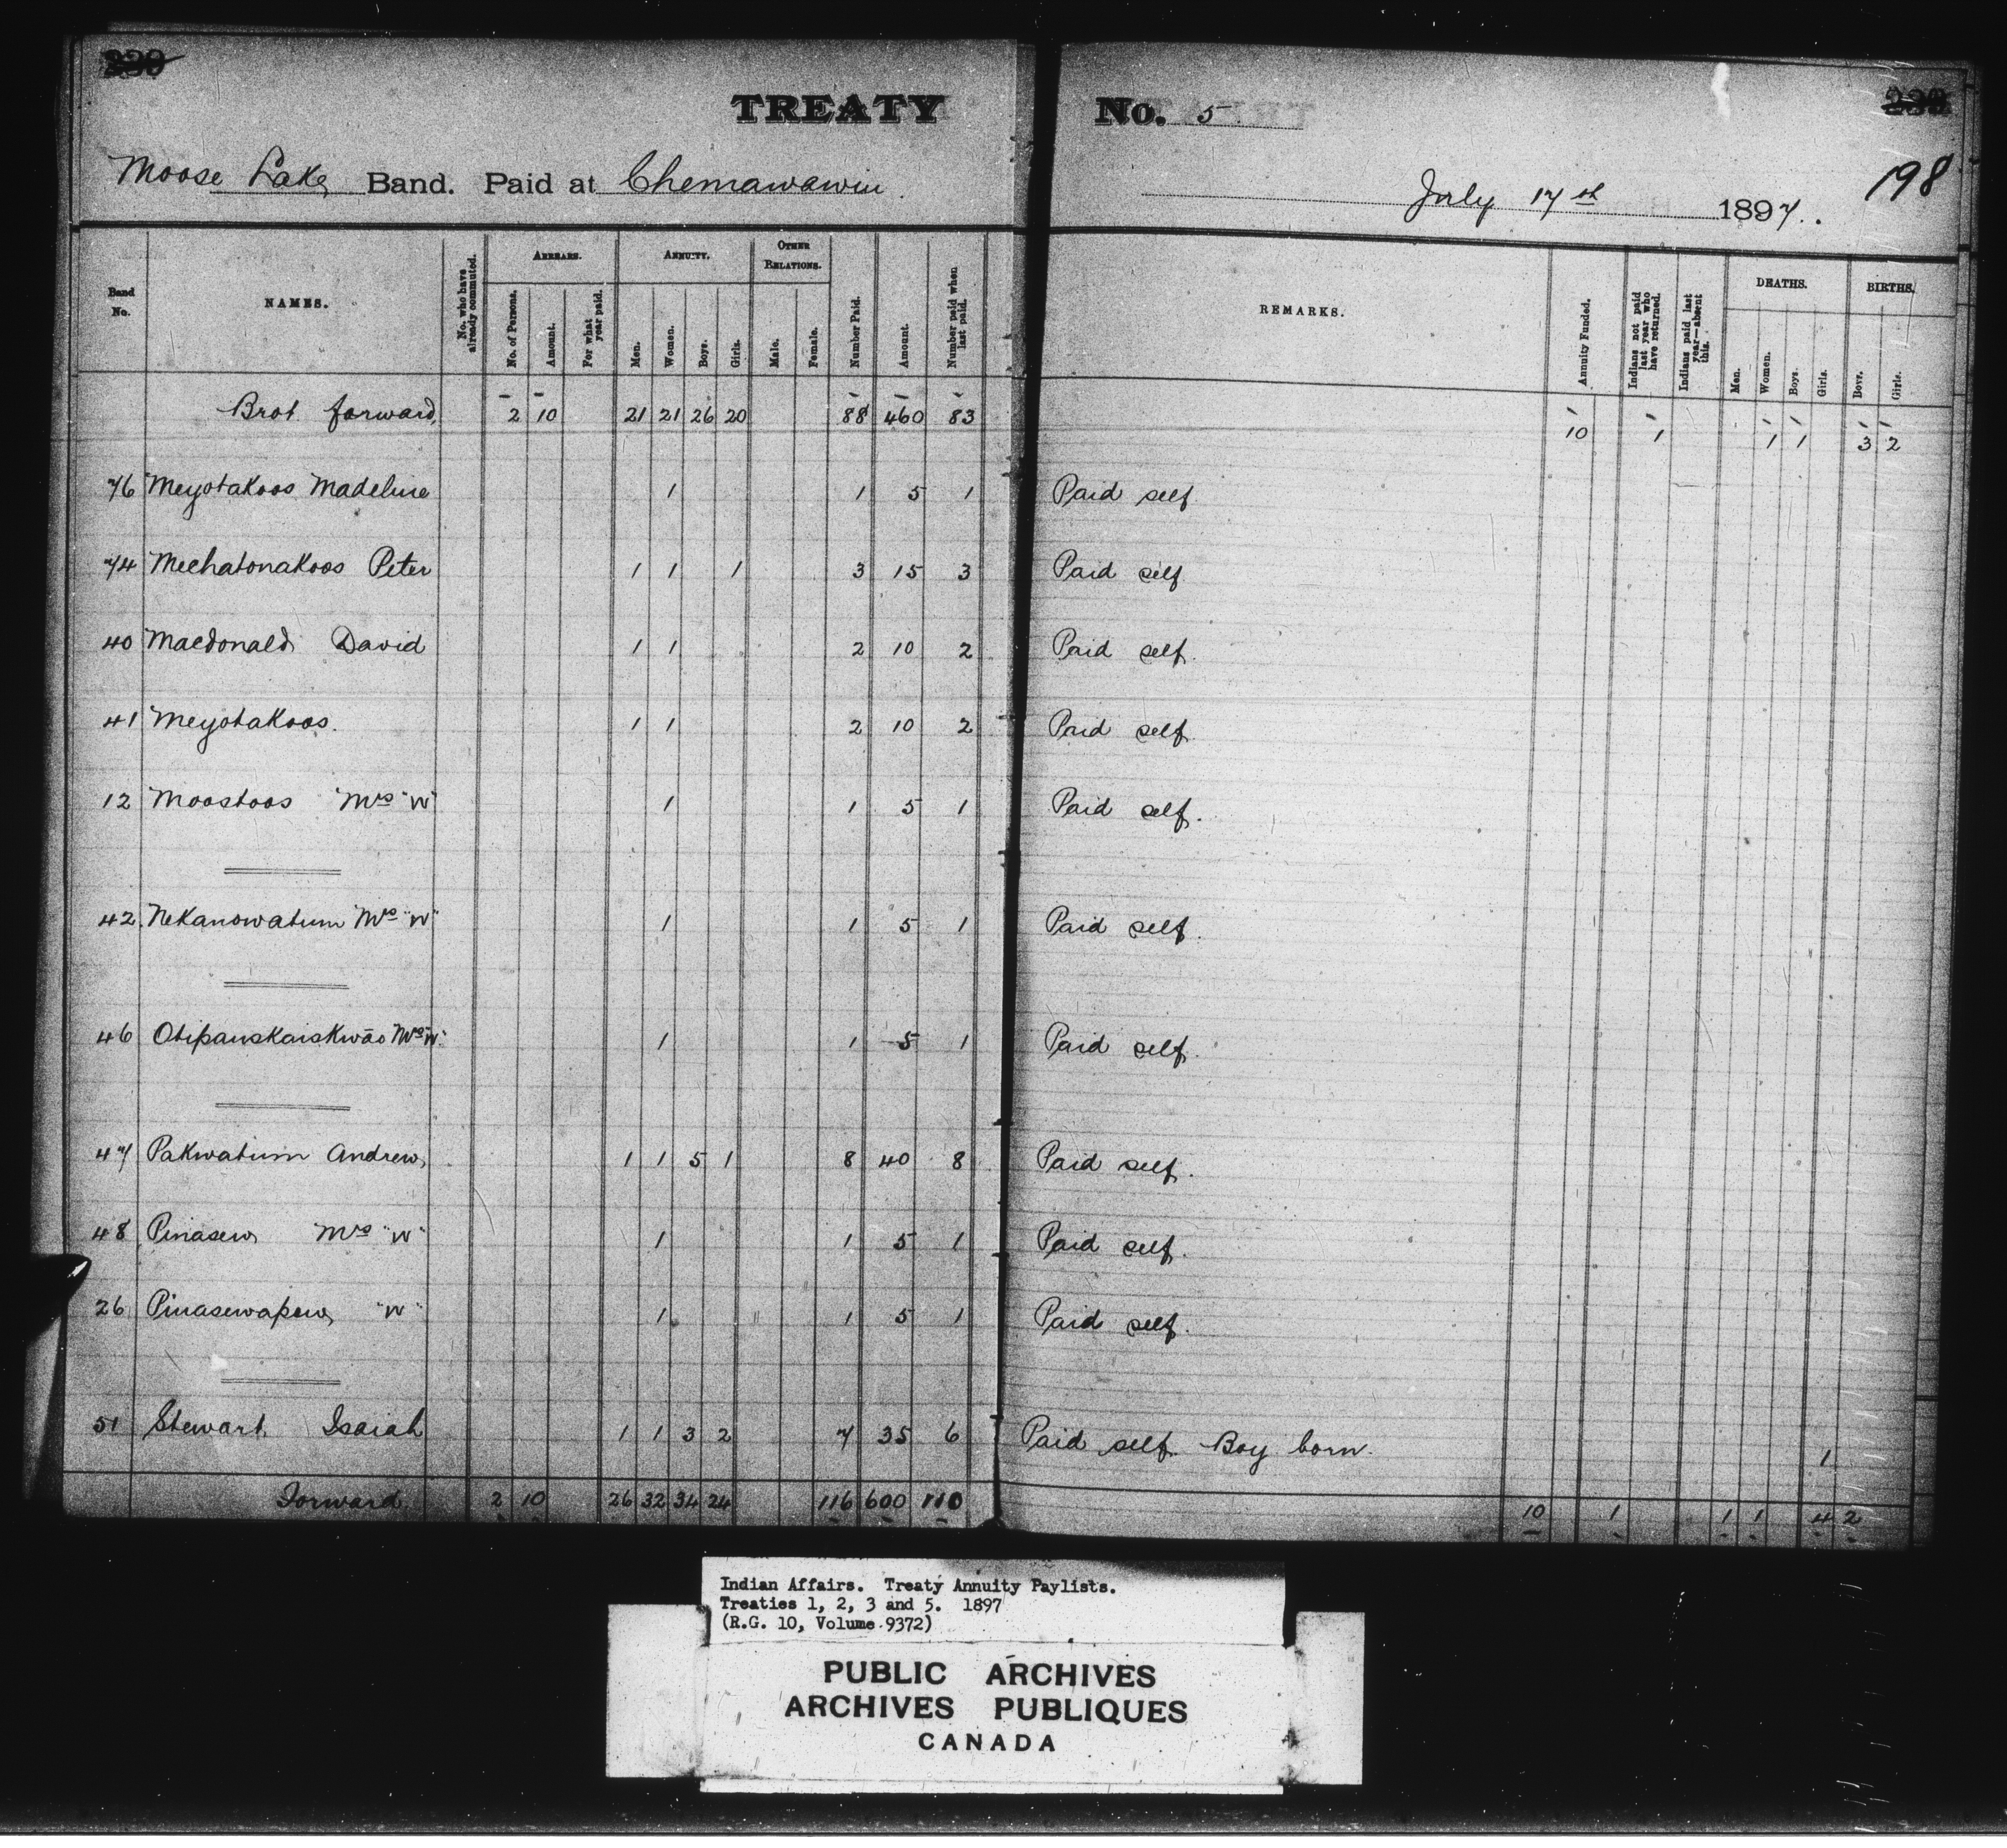 TREATY No. 5
Moose Lake Band. Paid at Chemawawin July 17th 1897. 198
Band No. NAMES. No. who have already commuted. ARREARS. No. of Persons. Amount. For what year paid. ANNUITY. Men. Women. Boys. Girls. OTHER RELATIONS. Male. Female. Number Paid. Amount. Number paid when last paid. REMARKS. Annuity Funded. Indians not paid last year who have returned. Indians paid last year—absent this. DEATHS. Men. Women. Boys. Girls. BIRTHS. Boys. Girls.
Brot. forward, 2 10 21 21 26 20 88 460 83 10 1 1 1 3 2
76 Meyotakoos Madeline 1 1 5 1 Paid self.
74 Mechatonakoos Peter 1 1 1 3 15 3 Paid self
40 Macdonald David 1 1 2 10 2 Paid self.
41 Meyotakoos. 1 1 2 10 2 Paid self.
12 Moostoos Mrs "W" 1 1 5 1 Paid self.
42. Nekanowatum Mrs "W" 1 1 5 1 Paid self.
46 Otipauskaiskwāo Mrs "W" 1 1 5 1 Paid self.
47 Pakwatum Andrew, 1 1 5 1 8 40 8 Paid self.
48 Pinasew Mrs "W" 1 1 5 1 Paid self.
26 Pinasewapew, "W" 1 1 5 1 Paid self.
51 Stewart, Isaiah 1 1 3 2 7 35 6 Paid self. Boy born. 1
Forward 2 10 26 32 34 24 116 600 110 10 1 1 1 4 2
Indian Affairs. Treaty Annuity Paylists.
Treaties 1, 2, 3 and 5. 1897
(R.G. 10, Volume 9372)
PUBLIC ARCHIVES
ARCHIVES PUBLIQUES
CANADA